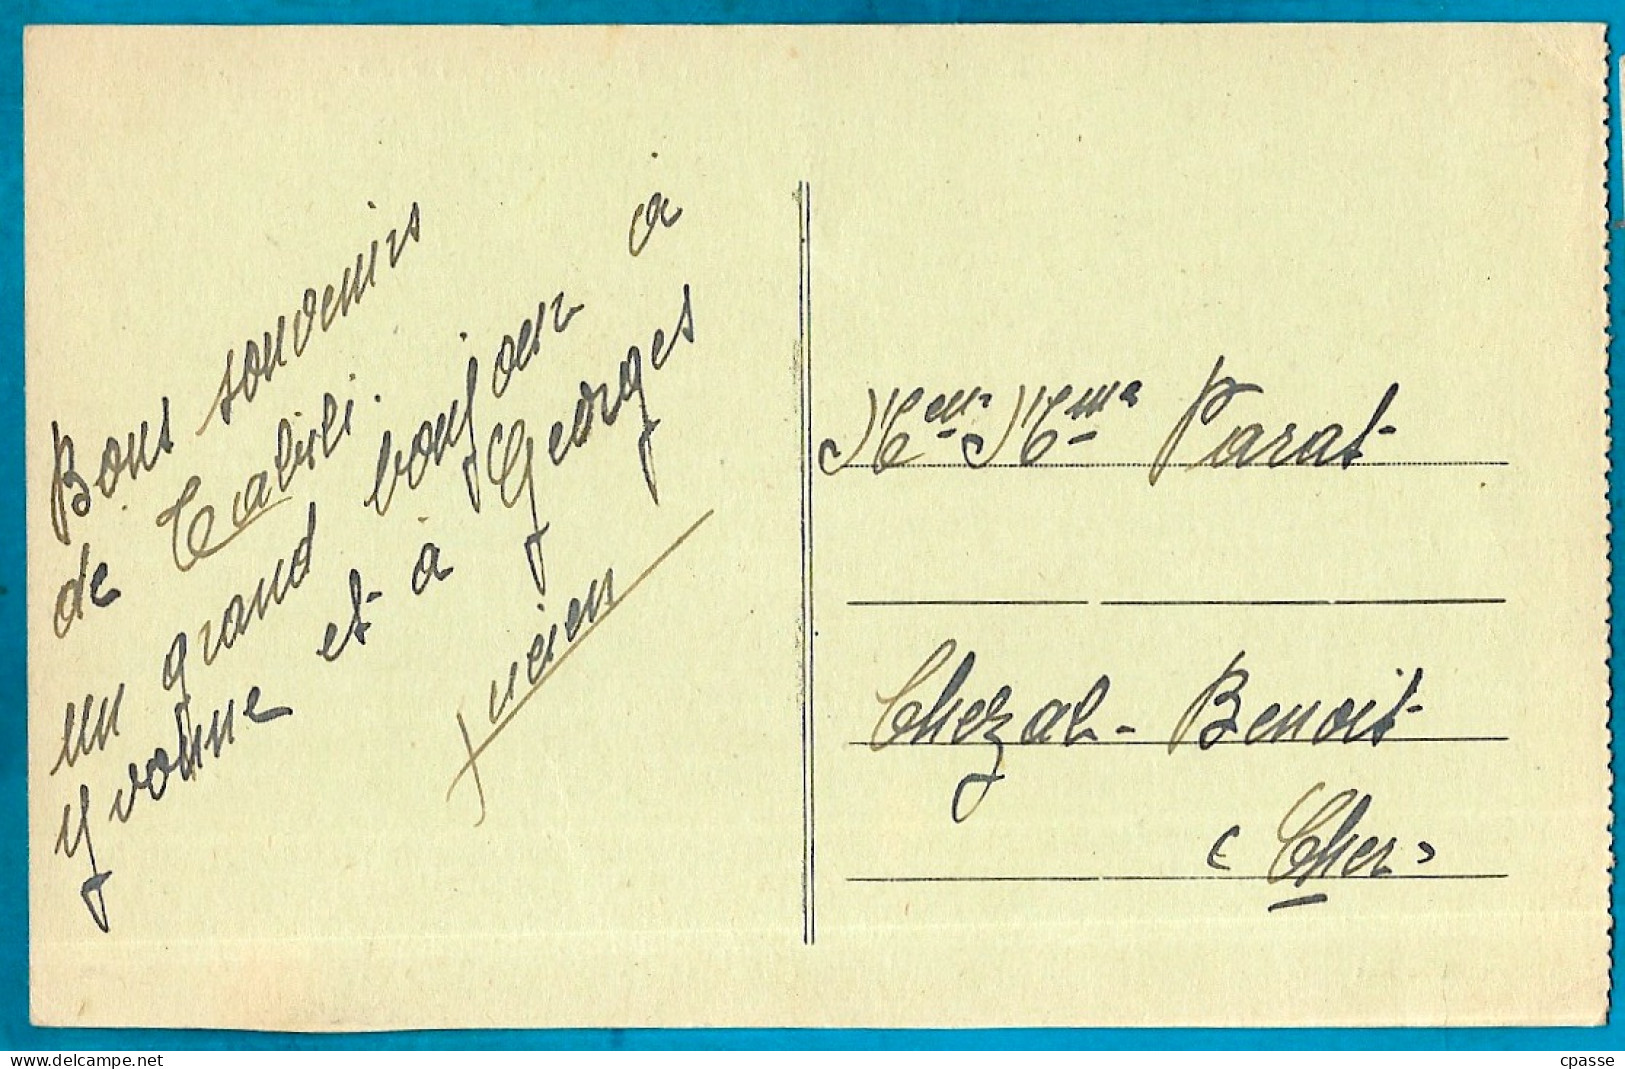 Bons souvenirs
de
un grand bonjour à
Yvonne et à Georges
Lucien
Mme Parat
Chezal-Benoit
(Cher)
delcampe.net
cpasse